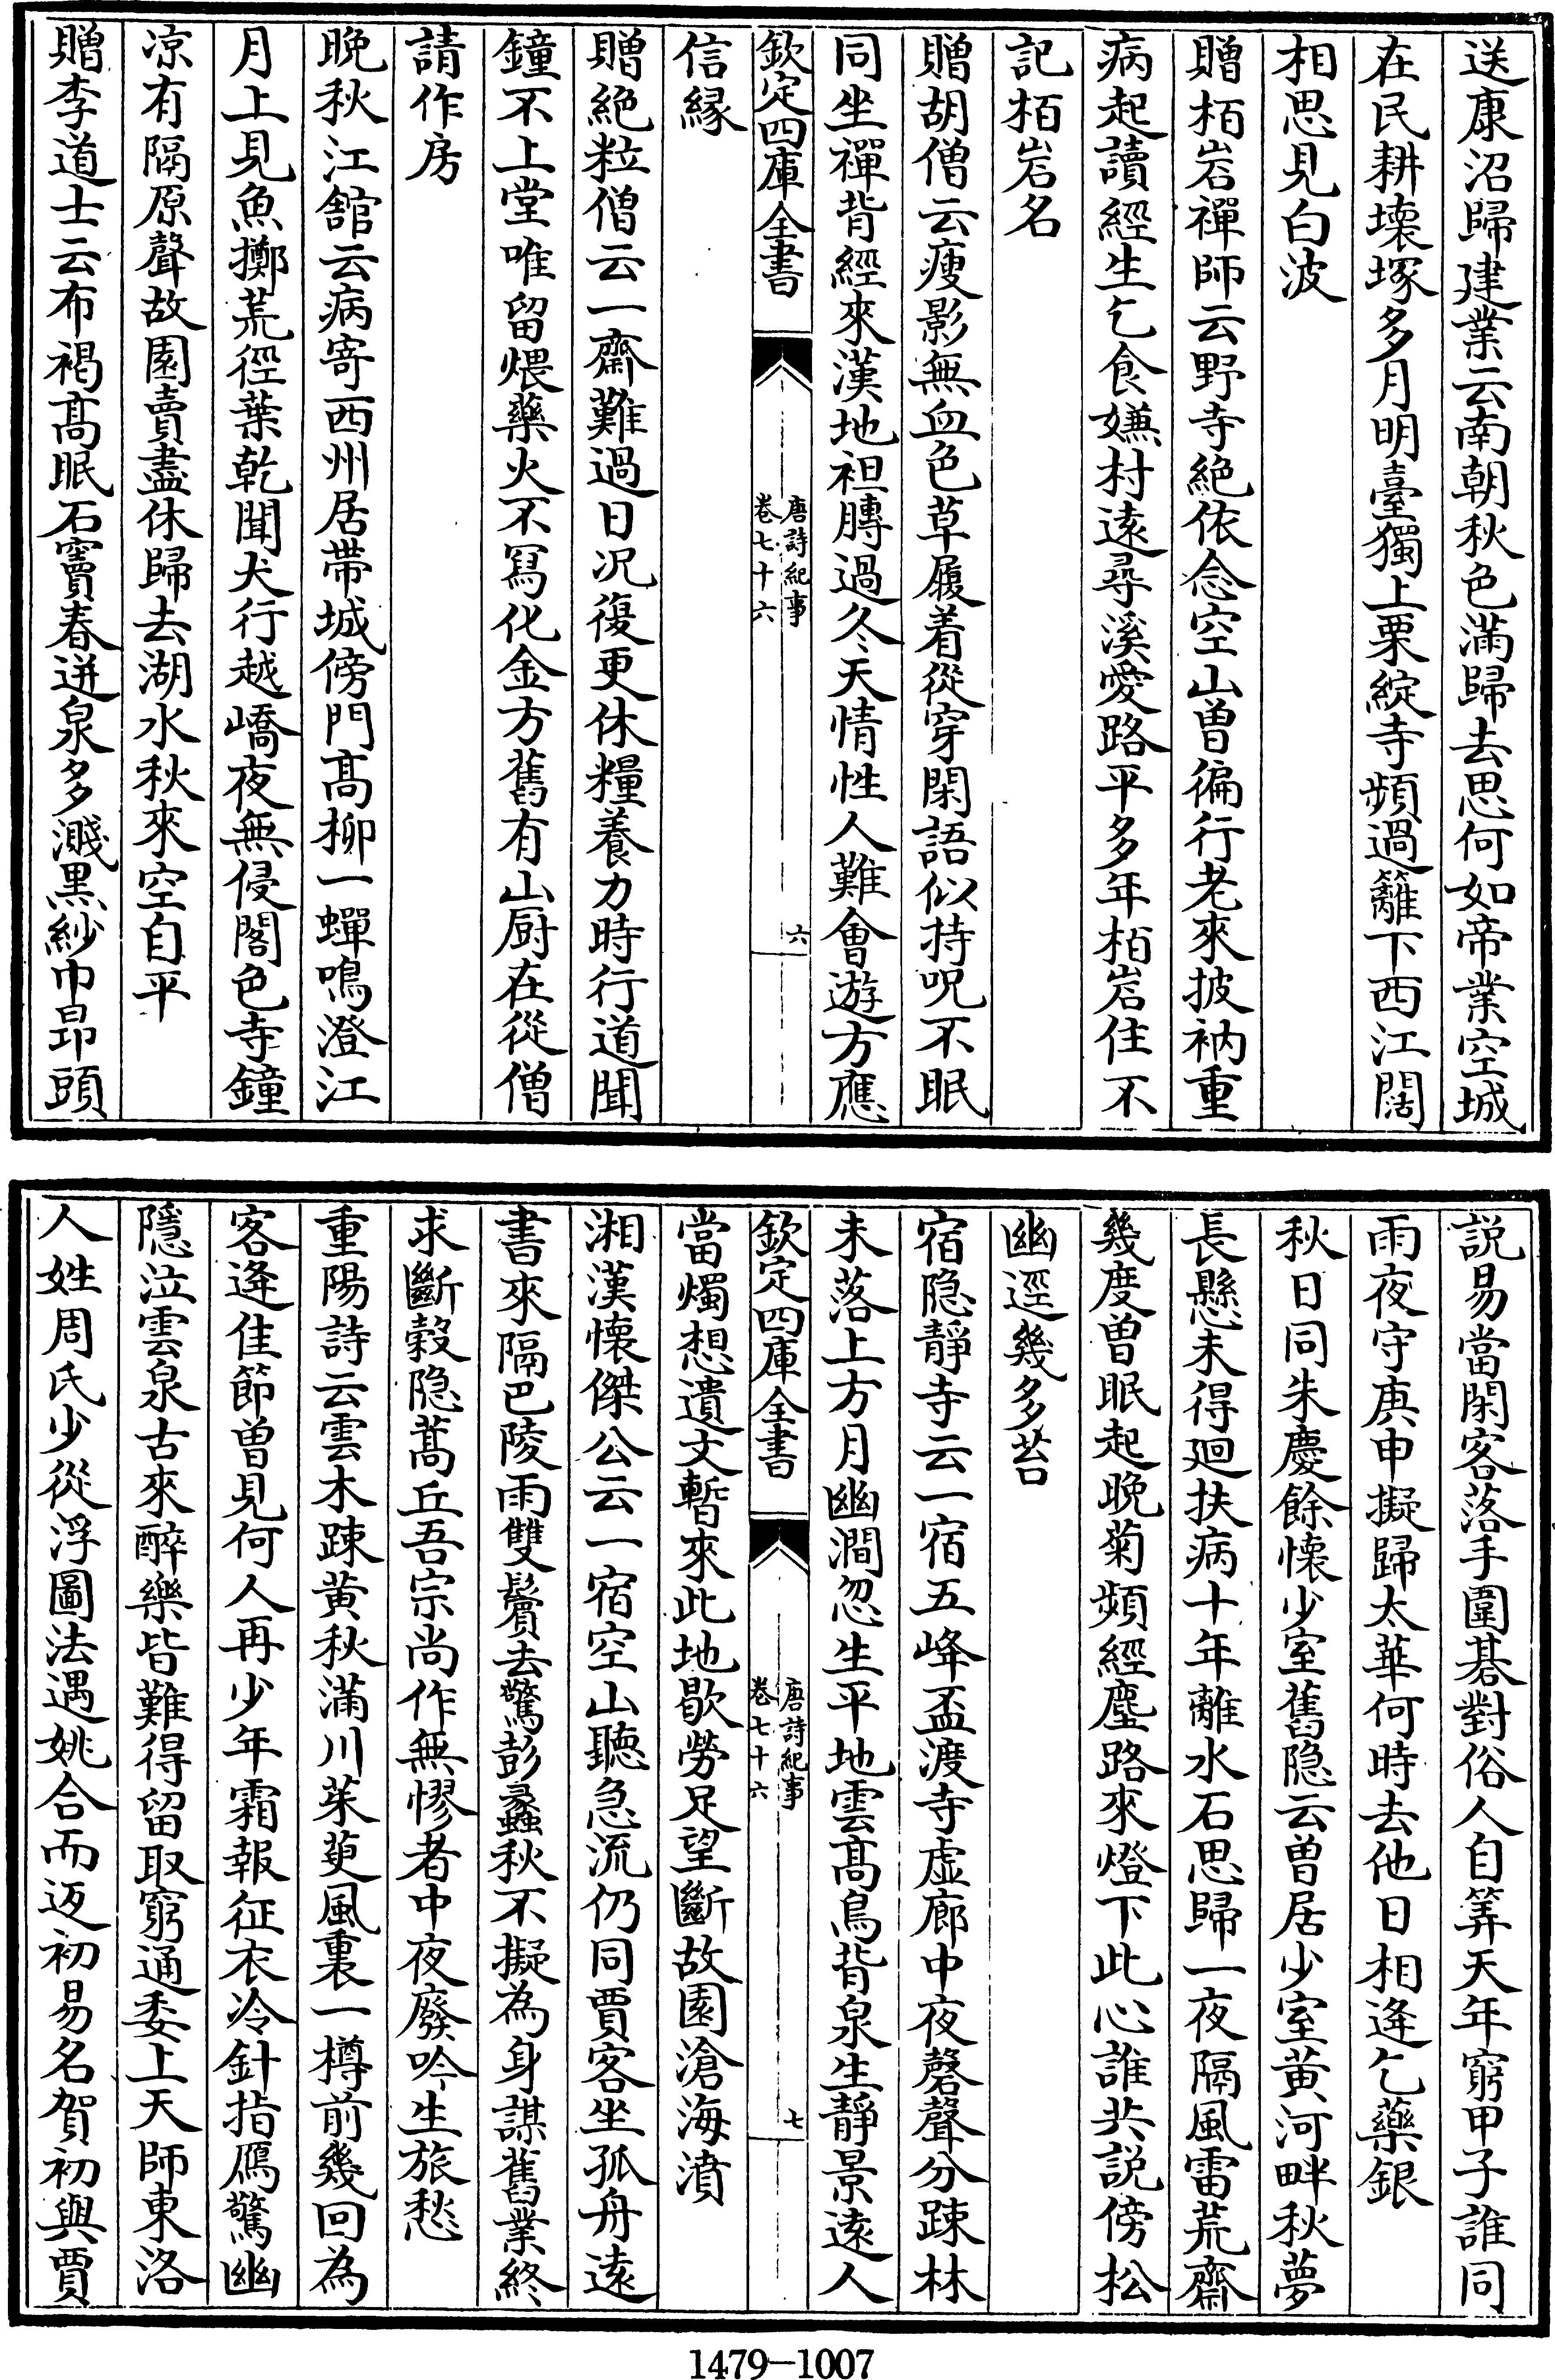 送康沼歸建業云南朝秋色滿歸去思何如帝業空城
在民耕壊塚多月明臺獨上栗綻寺頻過籬下西江闊
相思見白波
贈栢岩禪師云野寺絶依念空山曽徧行老來披衲重
病起讀經生乞食嫌村逺尋溪愛路平多年栢岩住不
記栢岩名
贈胡僧云瘦影無血色草履着從穿閑語似持呪不眠
同坐禪背經來漢地袒膊過冬天情性人難㑹遊方應
欽定四庫全書
唐詩紀事
卷七十六
六
信縁
贈絶粒僧云一齋難過日况復更休糧養力時行道聞
鐘不上堂唯留煨藥火不冩化金方舊有山厨在從僧
請作房
晩秋江舘云病寄西州居帶城傍門髙栁一蟬鳴澄江
月上見魚擲荒徑葉乾聞犬行越嶠夜無侵閣色寺鐘
凉有隔原聲故園賣盡休歸去湖水秋來空自平
贈李道士云布褐髙眠石竇春迸泉多濺黒紗巾昻頭
説易當閑客落手圍碁對俗人自筭天年窮甲子誰同
雨夜守庚申擬歸太華何時去他日相逄乞藥銀
秋日同朱慶餘懐少室舊隐云曽居少室黄河畔秋夢
長懸未得廻扶病十年離水石思歸一夜隔風雷荒齋
幾度曽眠起晩菊頻經塵路來燈下此心誰共説傍松
幽逕幾多苔
宿隐靜寺云一宿五峰盃渡寺虚廊中夜磬聲分踈林
未落上方月幽澗忽生平地雲髙鳥背泉生靜景逺人
欽定四庫全書
唐詩紀事
卷七十六
七
當燭想遺文暫來此地歇勞足望斷故園滄海濆
湘漢懐傑公云一宿空山聽急流仍同賈客坐孤舟逺
書來隔巴陵雨雙鬢去驚彭蠡秋不擬為身謀舊業終
求斷榖隐蒿丘吾宗尚作無憀者中夜廢吟生旅愁
重陽詩云雲木踈黄秋滿川茱萸風裏一樽前幾回為
客逄佳節曽見何人再少年霜報征衣冷針指鴈驚幽
隱泣雲泉古來醉樂皆難得留取窮通委上天師東洛
人姓周氏少從浮圖法遇姚合而返初易名賀初與賈
1479—1007